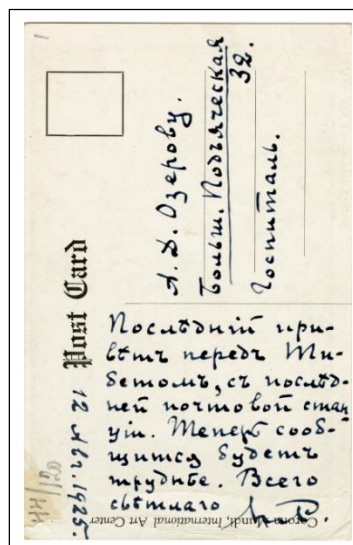 Post Card
А. Д. Озерову.
Больш. Подъяческая
32.
Госпиталь.
Послѣдній при-
вѣтъ передъ Ти-
бетомъ, съ послѣд-
ней почтовой стан
ціи. Теперь сооб-
щится будетъ
труднѣе. Всего
свѣтлаго
12 Авг. 1925.
Corona Mundi, International Art Center